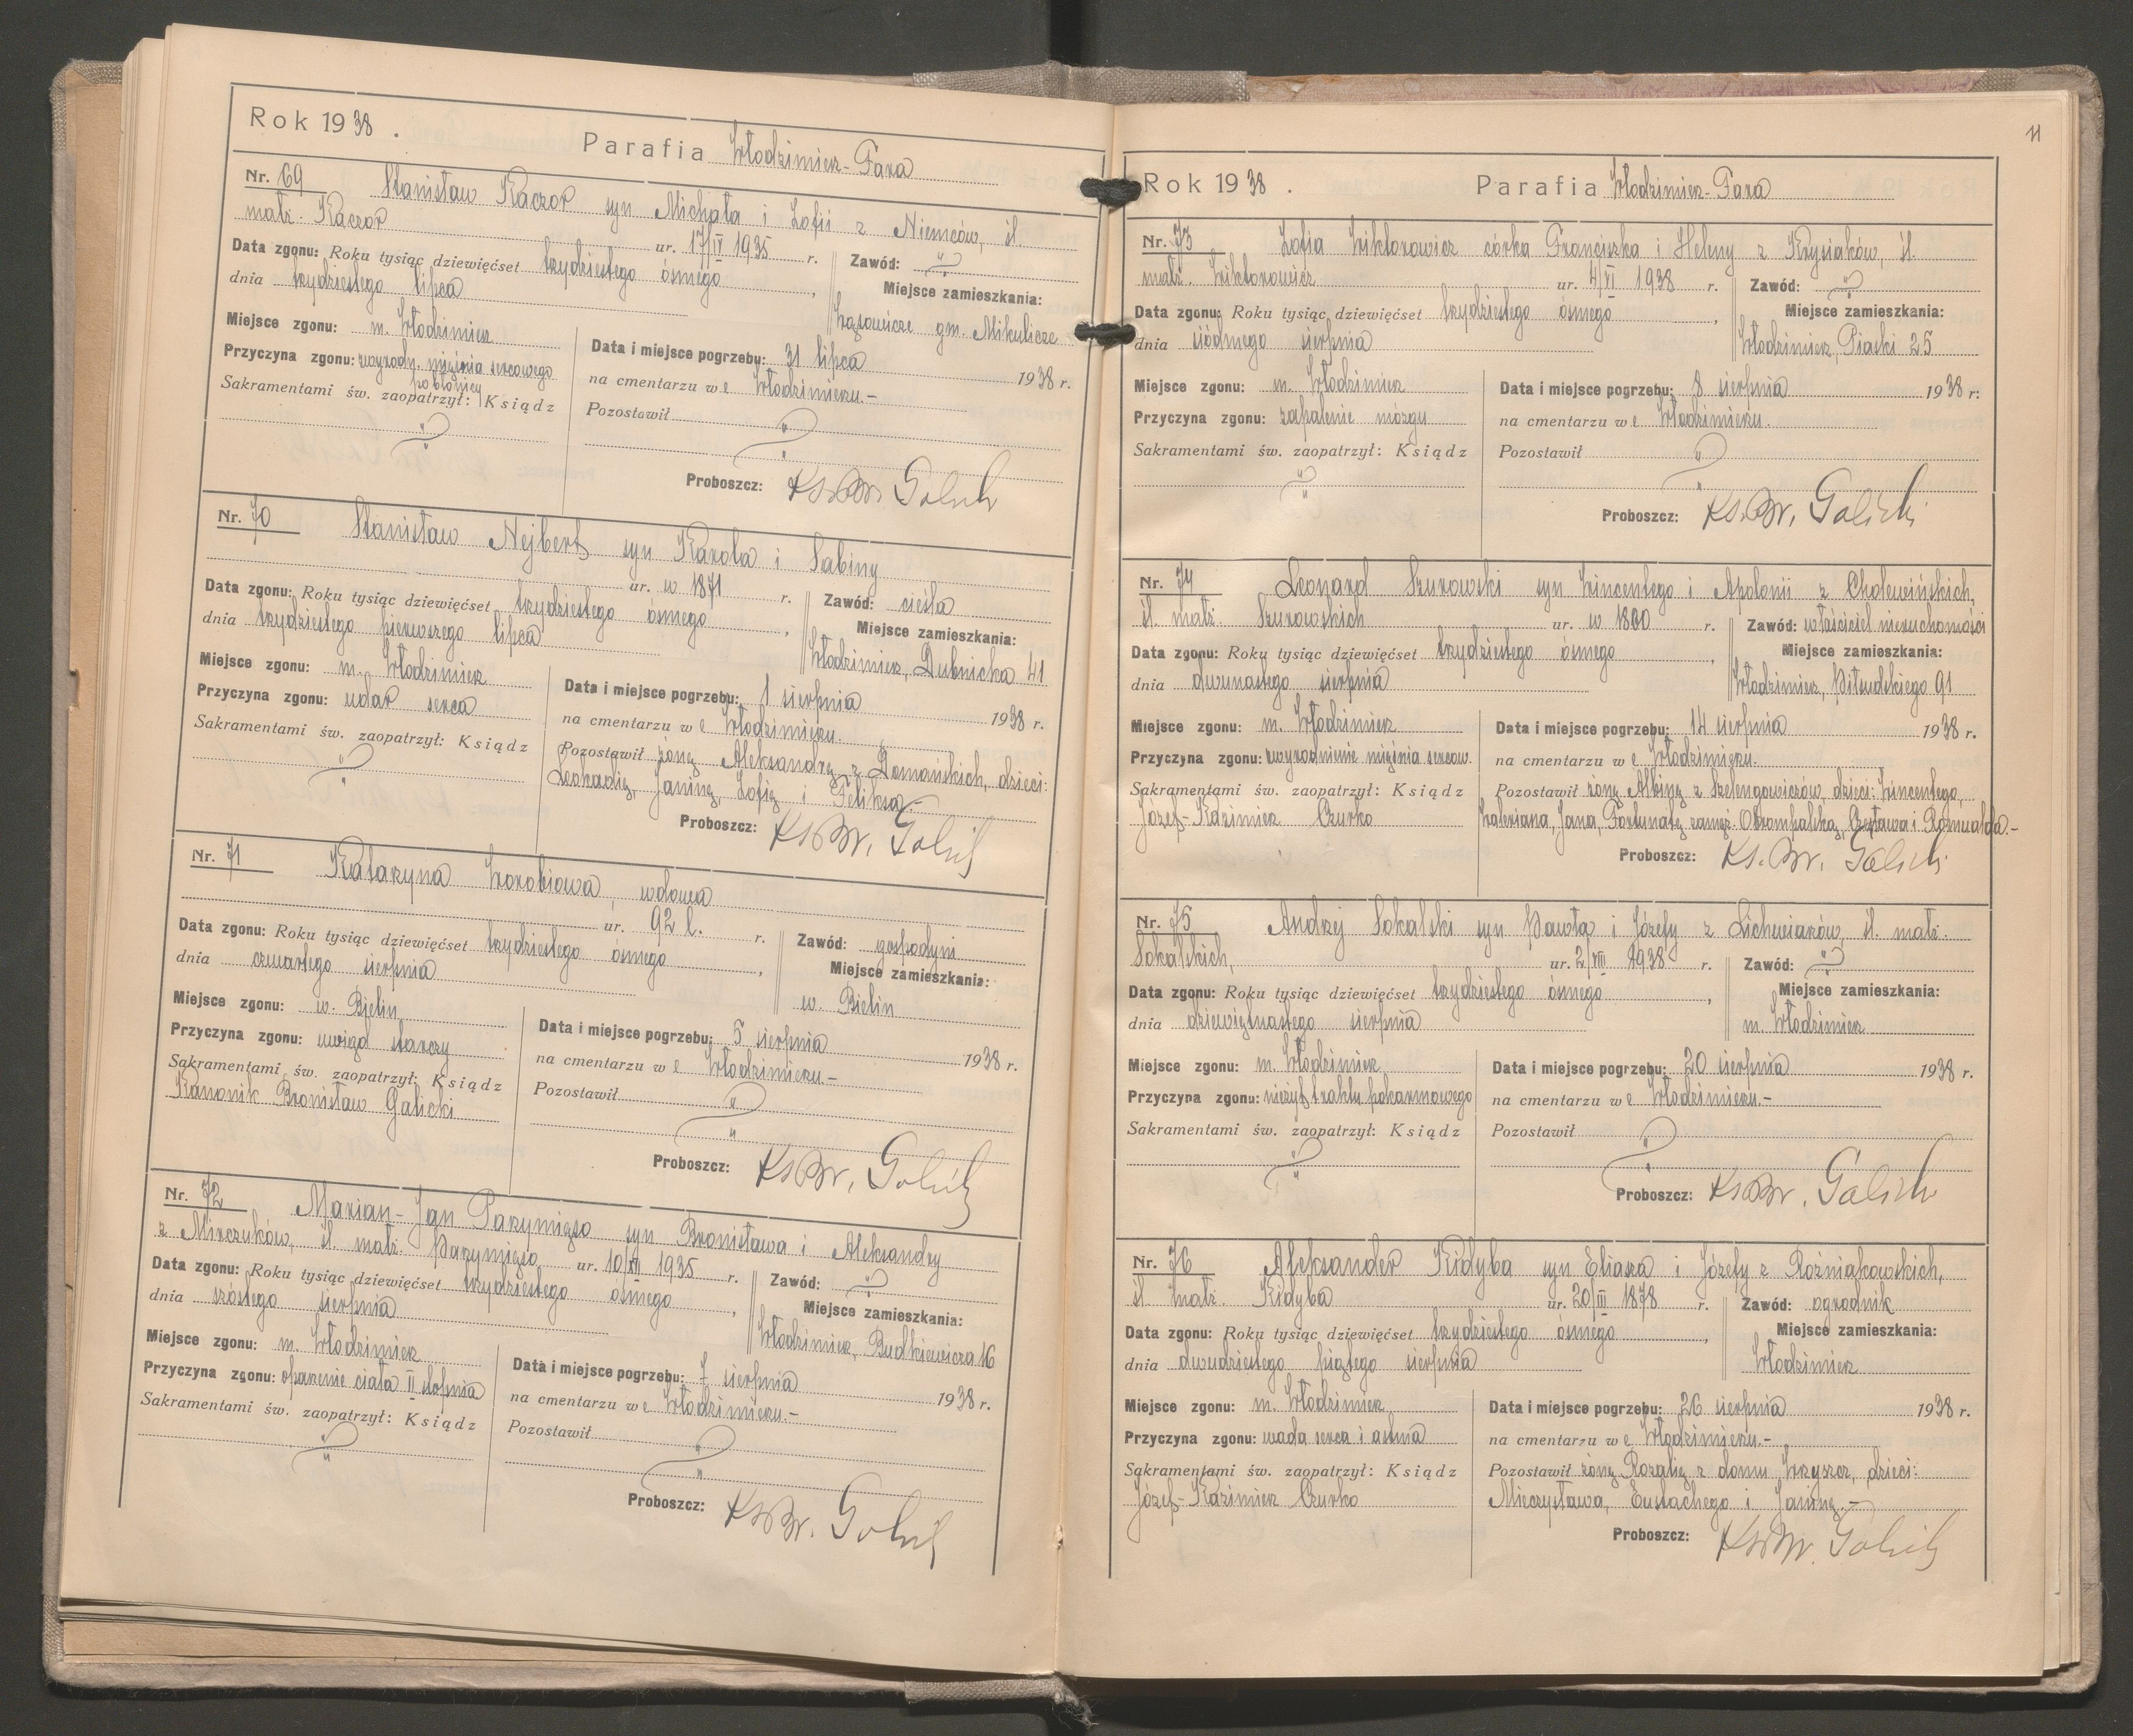 Rok 1938.
Parafia Włodzimierz-Fara
Nr. 69 Stanisław Kaczor syn Michała i Zofii z Niemców, śl.
małż. Kaczor ur. 17/IV 1935 r.
Data zgonu: Roku tysiąc dziewięćset trzydziestego ósmego,
dnia trzydziestego lipca
Zawód:
Miejsce zamieszkania:
gm. Mikulicze
Miejsce zgonu: m. Włodzimierz
Przyczyna zgonu: zwyrodn. mięśnia sercowego
po błonicy
Sakramentami św. zaopatrzył: Ksiądz
Data i miejsce pogrzebu: 31 lipca 1938 r.
na cmentarzu we Włodzimierzu.-
Pozostawił
Proboszcz: Ks. Br. Galicki
Nr. 70 Stanisław Nejbert syn Karola i Sabiny
ur. w 1871 r.
Data zgonu: Roku tysiąc dziewięćset trzydziestego ósmego,
dnia trzydziestego pierwszego lipca
Zawód: cieśla
Miejsce zamieszkania:
Włodzimierz, Dubnicka 41
Miejsce zgonu: m. Włodzimierz
Przyczyna zgonu: udar serca
Sakramentami św. zaopatrzył: Ksiądz
Data i miejsce pogrzebu: 1 sierpnia 1938 r.
na cmentarzu we Włodzimierzu.
Pozostawił żonę Aleksandrę z Domańskich, dzieci:
Leokadię, Janinę, Zofię i Feliksa.-
Proboszcz: Ks. Br. Galicki
Nr. 71 Katarzyna Worobiowa, wdowa
ur. 92 l. r.
Data zgonu: Roku tysiąc dziewięćset trzydziestego ósmego,
dnia czwartego sierpnia
Zawód: gospodyni
Miejsce zamieszkania:
w. Bielin
Miejsce zgonu: w. Bielin
Przyczyna zgonu: uwiąd starczy
Sakramentami św. zaopatrzył: Ksiądz
Kanonik Bronisław Galicki
Data i miejsce pogrzebu: 5 sierpnia 1938 r.
na cmentarzu we Włodzimierzu.-
Pozostawił
Proboszcz: Ks. Br. Galicki
Nr. 72 Marian-Jan Parzymięso syn Bronisława i Aleksandry
z Mirczuków, śl. małż. Parzymięso ur. 10/XII 1935 r.
Data zgonu: Roku tysiąc dziewięćset trzydziestego ósmego,
dnia szóstego sierpnia
Zawód:
Miejsce zamieszkania:
Włodzimierz, Budkiewicza 16
Miejsce zgonu: m. Włodzimierz
Przyczyna zgonu: oparzenie ciała II stopnia
Sakramentami św. zaopatrzył: Ksiądz
Data i miejsce pogrzebu: 7 sierpnia 1938 r.
na cmentarzu we Włodzimierzu.-
Pozostawił
Proboszcz: Ks. Br. Galicki
11
Rok 1938.
Parafia Włodzimierz-Fara
Nr. 73 Zofia Wiktorowicz córka Franciszka i Heleny z Krysiaków, śl.
małż. Wiktorowicz ur. 4/VI 1938 r.
Data zgonu: Roku tysiąc dziewięćset trzydziestego ósmego,
dnia siódmego sierpnia
Zawód:
Miejsce zamieszkania:
Włodzimierz, Piaski 25
Miejsce zgonu: m. Włodzimierz
Przyczyna zgonu: zapalenie mózgu
Sakramentami św. zaopatrzył: Ksiądz
Data i miejsce pogrzebu: 8 sierpnia 1938 r.
na cmentarzu we Włodzimierzu.
Pozostawił
Proboszcz: Ks. Br. Galicki
Nr. 74 Leonard Szurowski syn Wincentego i Apolonii z Cholewińskich,
śl. małż. Szurowskich ur. w 1860 r.
Data zgonu: Roku tysiąc dziewięćset trzydziestego ósmego,
dnia dwunastego sierpnia
Zawód: właściciel nieruchomości
Miejsce zamieszkania:
Włodzimierz, Piłsudskiego 91
Miejsce zgonu: m. Włodzimierz
Przyczyna zgonu: zwyrodnienie mięśnia sercow.
Sakramentami św. zaopatrzył: Ksiądz
Józef-Kazimierz Czurko
Data i miejsce pogrzebu: 14 sierpnia 1938 r.
na cmentarzu we Włodzimierzu.
Pozostawił żonę Albinę z Szelengowiczów, dzieci: Wincentego,
Waleriana, Jana, Fortunatę zamęż. Czesława i Romualda.-
Proboszcz: Ks. Br. Galicki
Nr. 75 Andrzej Sokalski syn Pawła i Józefy z Lichwiarów, śl. małż.
Sokalskich, ur. 2/VIII 1938 r.
Data zgonu: Roku tysiąc dziewięćset trzydziestego ósmego,
dnia dziewiętnastego sierpnia
Zawód:
Miejsce zamieszkania:
m. Włodzimierz
Miejsce zgonu: m. Włodzimierz
Przyczyna zgonu: nieżyt traktu pokarmowego
Sakramentami św. zaopatrzył: Ksiądz
Data i miejsce pogrzebu: 20 sierpnia 1938 r.
na cmentarzu we Włodzimierzu.-
Pozostawił
Proboszcz: Ks. Br. Galicki
Nr. 76 Aleksander Kidyba syn Eliasza i Józefy z Rożniakowskich,
śl. małż. Kidyba ur. 20/III 1878 r.
Data zgonu: Roku tysiąc dziewięćset trzydziestego ósmego,
dnia dwudziestego piątego sierpnia
Zawód: ogrodnik
Miejsce zamieszkania:
Włodzimierz
Miejsce zgonu: m. Włodzimierz
Przyczyna zgonu: wada serca i astma
Sakramentami św. zaopatrzył: Ksiądz
Józef-Kazimierz Czurko
Data i miejsce pogrzebu: 26 sierpnia 1938 r.
na cmentarzu we Włodzimierzu.-
Pozostawił żonę Rozalię z domu Wryszcz, dzieci:
Mieczysława, Eustachego i Janinę.-
Proboszcz: Ks. Br. Galicki